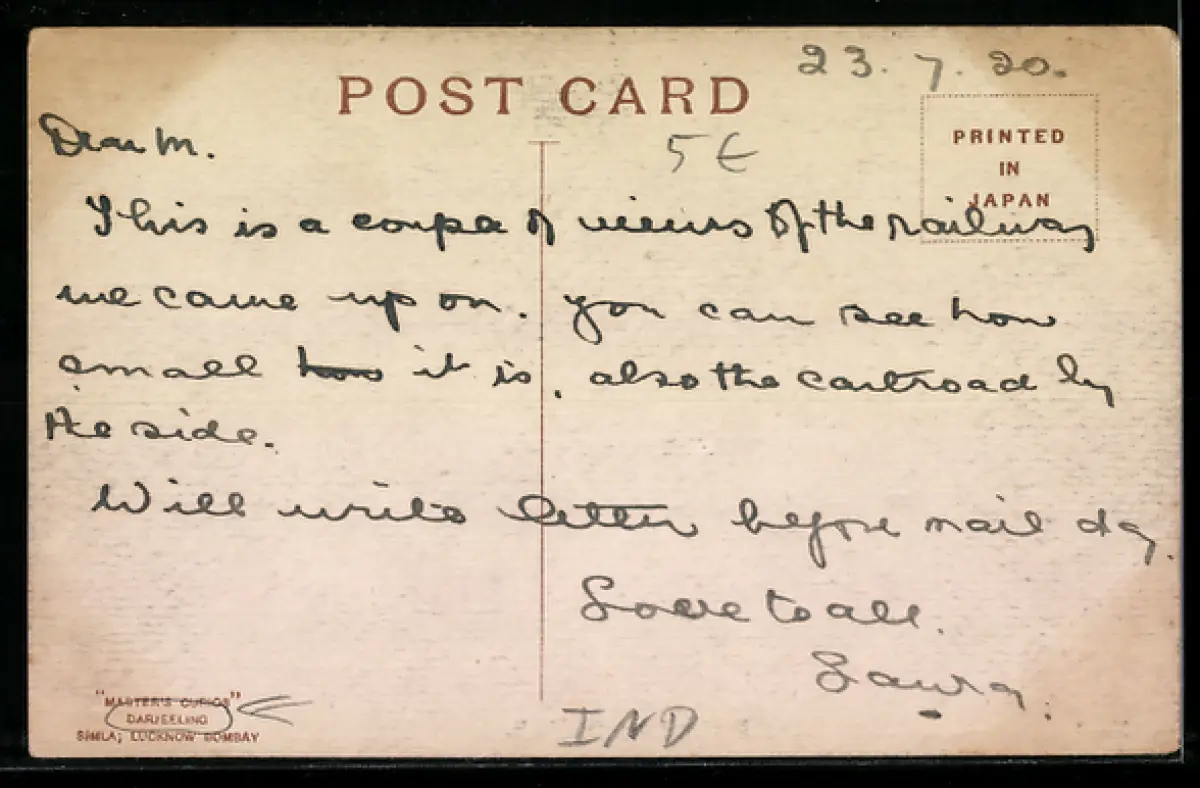 23. 7. 20.
POST CARD
5 €
PRINTED
IN
JAPAN
Dear M.
This is a coupe of views of the railway
we came up on. You can see how
small how it is, also the cartroad by
the side.
Will write letter before mail day.
Love to all.
Laura.
"MASTER'S CURIOS"
DARJEELING
SIMLA; LUCKNOW BOMBAY
IND